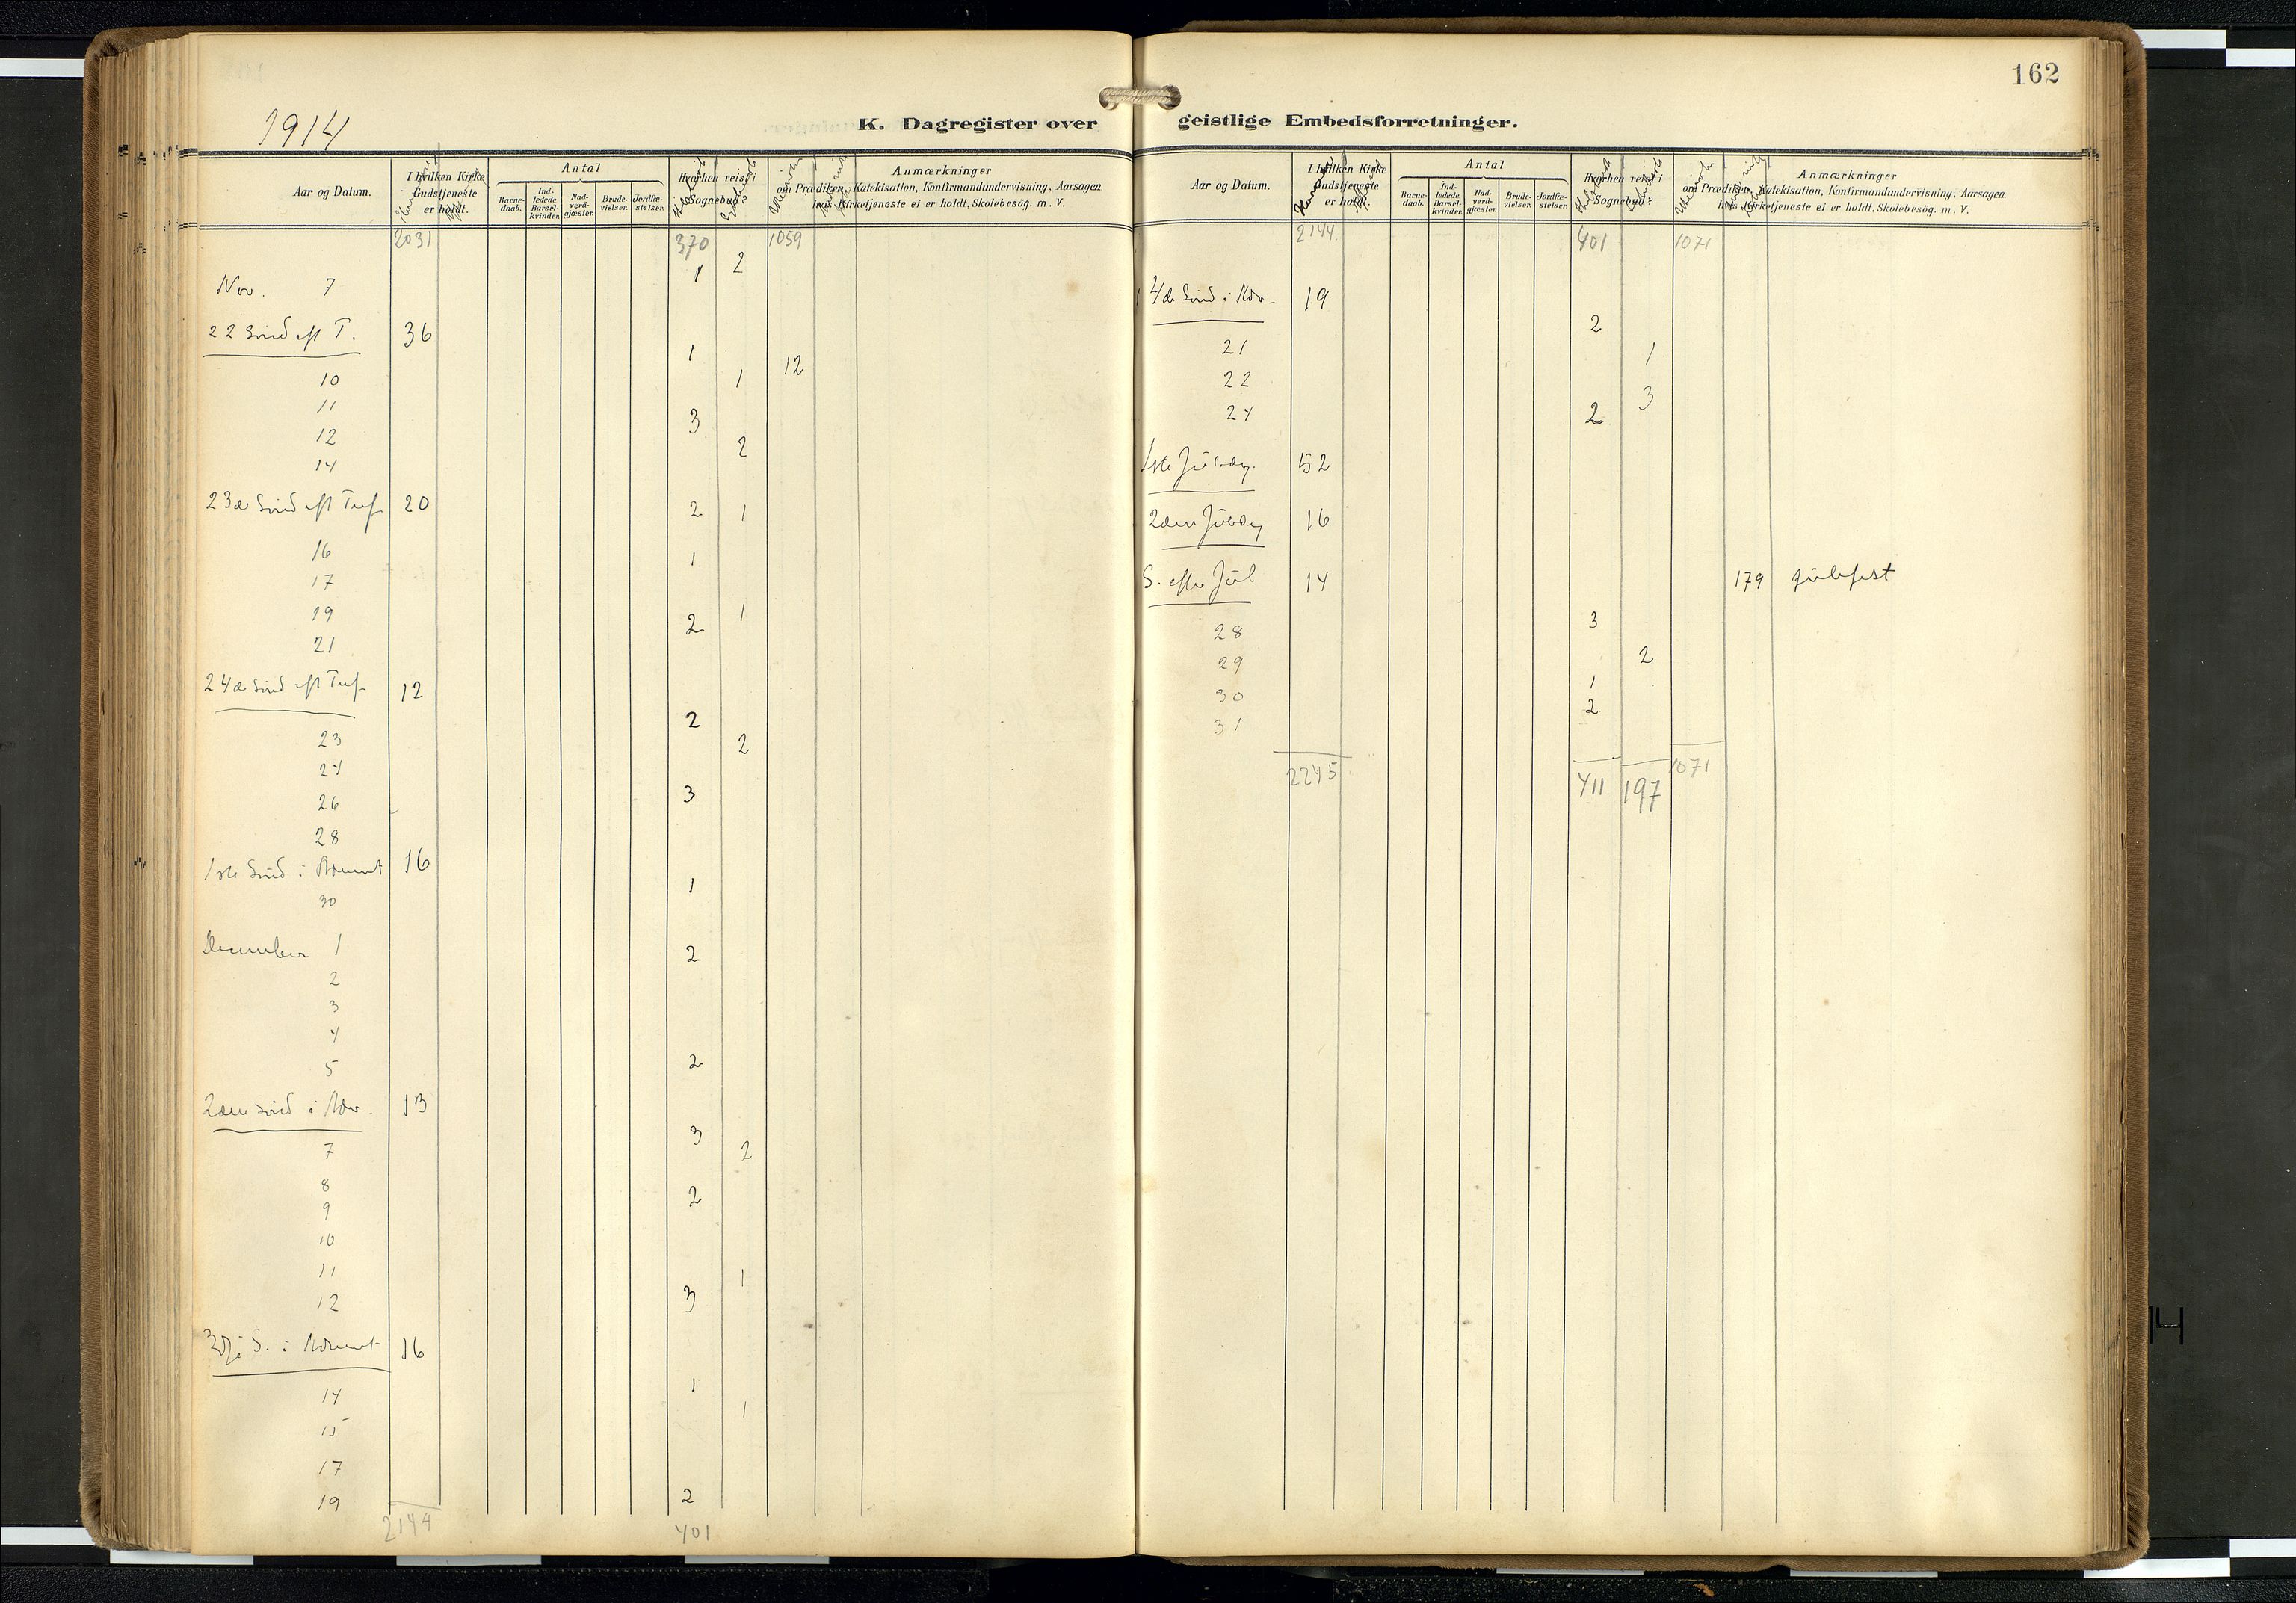 162
1914
K. Dagregister over geistlige Embedsforretninger.
Aar og Datum. I hvilken Kirke Gudstjeneste er holdt. Antal Barne-daab. Ind-ledede Barsel-kvinder. Nad-verd-gjæster. Brude-vielser. Jordfæ-stelser. Hvorhen reist i Sognebud. Anmærkninger om Prædiken, Katekisation, Konfirmandundervisning, Aarsagen hvis Kirketjeneste ei er holdt, Skolebesög. m. V.
2031 370 1059
1 2
Nov. 7
22 Sönd eft T. 36
1 12
10 1
11
3
12
2
14
23de Sönd eft Tref 20 2 1
16 1
17
19 2 1
21
24de Sönd eft Tref 12
2
23 2
24
26 3
28
1ste Sönd i Advent 16
1
30
December 1 2
2
3
4
5 2
2den Sönd i Adv. 13
3
7 2
8 2
9
10
11 1
12 3
3dje S. i Advent 16
14 1
1
15
17
19 2
2144 401
Aar og Datum. I hvilken Kirke Gudstjeneste er holdt. Antal Barne-daab. Ind-ledede Barsel-kvinder. Nad-verd-gjæster. Brude-vielser. Jordfæ-stelser. Hvorhen reist i Sognebud. Anmærkninger om Prædiken, Katekisation, Konfirmandundervisning, Aarsagen hvis Kirketjeneste ei er holdt, Skolebesög. m. V.
2144 401 1071
4de Sönd i Adv. 19
2
21 1
22
3
24 2
1ste Juledag. 52
2den Juledag 16
S. efter Jül 14 179 Julefest
28 3
29 2
30 1
31 2
2245 411 197 1071